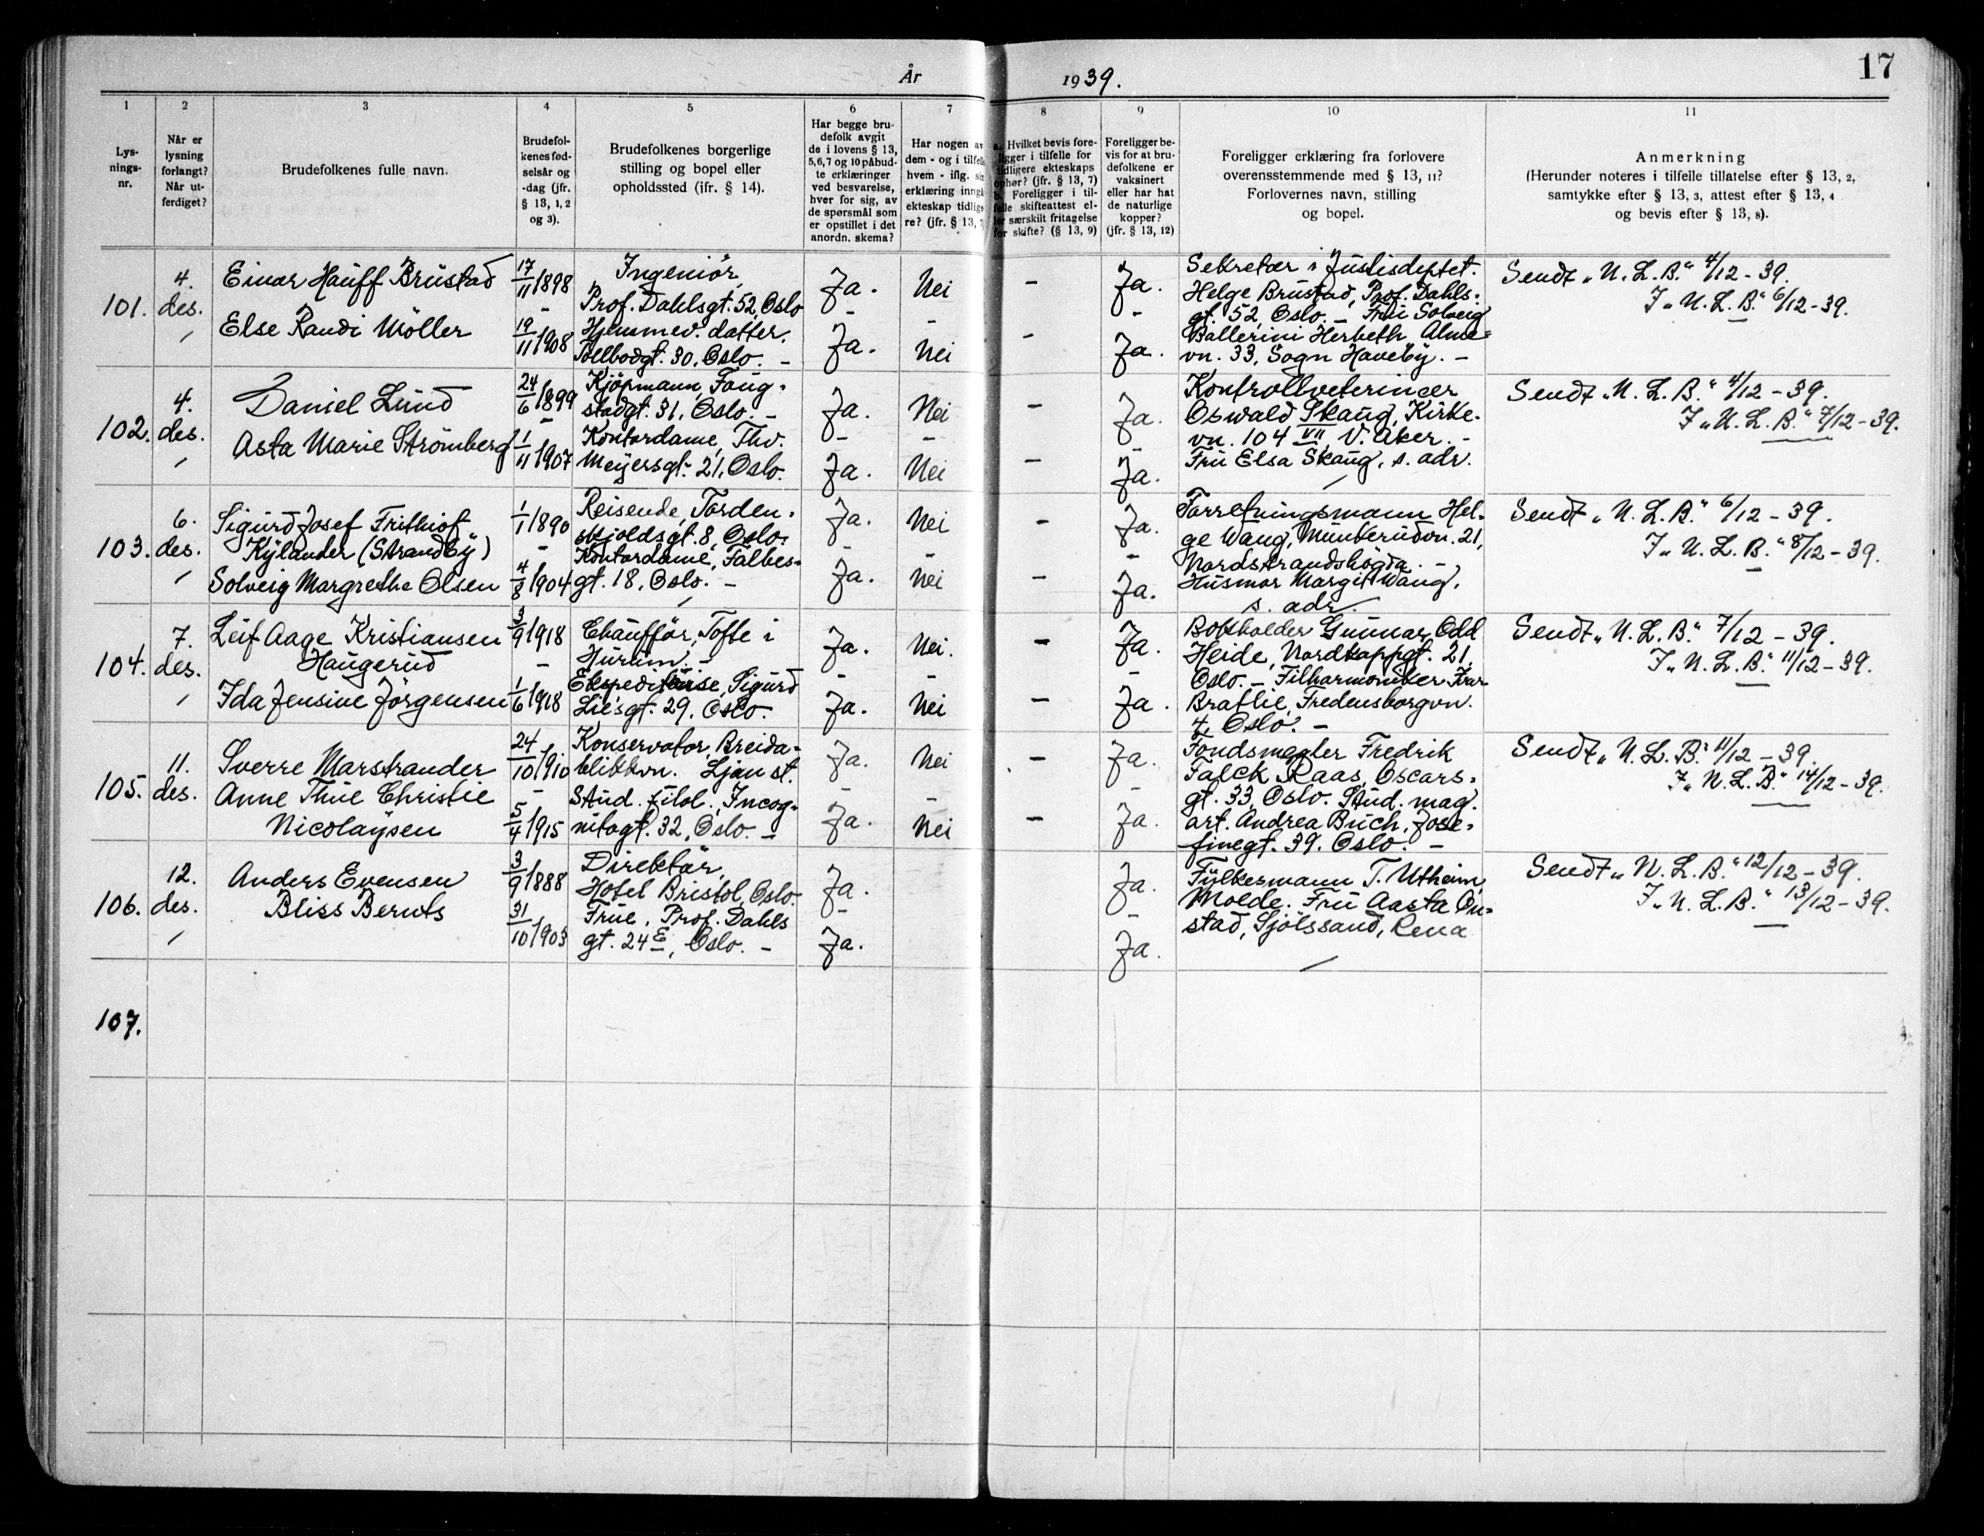 År 1939.
17
1 2 3 4 5 6 7 8 9 10 11
Lys-
nings-
nr.
Når er
lysning
forlangt?
Når ut-
ferdiget?
Brudefolkenes fulle navn.
Brudefol-
kenes fød-
selsår og
-dag (jfr.
§ 13, 1, 2
og 3).
Brudefolkenes borgerlige
stilling og bopel eller
opholdssted (jfr. § 14).
Har begge bru-
defolk avgit
de i lovens § 13,
5, 6, 7 og 10 påbud-
te erklæringer
ved besvarelse,
hver for sig, av
de spørsmål som
er opstillet i det
anordn. skema?
Har nogen av
dem - og i tilfelle
hvem - iflg. sin
erklæring inngå
ekteskap tidlige
re? (jfr. § 13, 7
a. Hvilket bevis fore-
ligger i tilfelle for
tidligere ekteskaps
ophør? (jfr. § 13, 7)
b. Foreligger i til-
felle skifteattest el-
ler særskilt fritagelse
for skifte? (§ 13, 9)
Foreligger be-
vis for at bru-
defolkene er
vaksinert
eller har hat
de naturlige
kopper?
(jfr. § 13, 12)
Foreligger erklæring fra forlovere
overensstemmende med § 13, 11?
Forlovernes navn, stilling
og bopel.
Anmerkning
(Herunder noteres i tilfelle tillatelse efter § 13, 2,
samtykke efter § 13, 3, attest efter § 13, 4
og bevis efter § 13, 8).
101.
4.
des.
Einar Hauff Brustad
Else Randi Möller
17/11 1898
-
19/11 1908
Ingeniör,
Prof. Dahlsgt. 52, Oslo
Hjemmev. datter.
gt. 30, Oslo. -
Ja.
-
Ja.
Nei
-
Nei
-
-
Ja.
-
Ja.
Sekretær i Justisdeptet.
Helge Brustad, Prof. Dahls-
gt. 52, Oslo. - Fru Solveig
Ballerini Herbeth, Alme-
vn. 33, Sogn Haveby. -
Sendt „N. L. B." 4/12 - 39.
I „N. L. B." 6/12 - 39.
102.
4.
des.
Daniel Lund
Asta Marie Strömberg
24/6 1899
-
1/11 1907
Kjöpmann, Foug-
stadgt. 31, Oslo. -
Kontordame, Thv.
Meyersgt. 21, Oslo.
Ja.
-
Ja.
Nei
-
Nei
-
-
Ja.
-
Ja.
Kontrollveterinær
Oswald Skaug, Kirke-
vn. 104 VII, V. Aker. -
Fru Elsa Skaug, s. adr.
Sendt „N. L. B." 4/12 - 39.
I „N. L. B." 7/12 - 39.
103.
6.
des.
Sigurd Josef Frithiof
Kylander (Strandby)
Solveig Margrethe Olsen
1/1 1890
-
4/8 1904
Reisende, Torden-
skjoldsgt. 8, Oslo.
Kontordame, Falbes-
gt. 18, Oslo. -
Ja.
-
Ja.
Nei
-
Nei
-
-
Ja.
-
Ja.
Forretningsmann Hel-
ge Wang, Munkerudvn. 21,
Nordstrandshögda. -
Husmor Margit Wang,
s. adr.
Sendt „N. L. B." 6/12 - 39.
I „N. L. B." 8/12 - 39.
104.
7.
des.
Leif Aage Kristiansen
Haugerud
Ida Jensine Jörgensen
3/9 1918
-
1/6 1918
Chaufför, Tofte i
Hurum. -
Ekspeditrise, Sigurd
Liesgt. 29, Oslo.
Ja.
-
Ja.
Nei.
-
Nei
-
-
Ja.
-
Ja.
Bobsholder Gunnar Odd
Heide, Nordkappgt. 21,
Oslo. - Filharmoniker Ivar
Bratlie, Fredensborgvn.
4, Oslo. -
Sendt „N. L. B." 7/12 - 39.
I „N. L. B." 11/12 - 39.
105.
11.
des.
Sverre Marstrander
Anne Thue Christie
Nicolaysen
24/10 1910
-
5/4 1915
Konservator, Breida-
blikkvn. Ljan st.
Stud. filol., Incog-
nitogt. 32, Oslo. -
Ja.
-
Ja.
Nei
-
Nei
-
-
Ja.
-
Ja.
Fondsmegler Fredrik
Falck Raas, Oscars-
gt. 33, Oslo. Stud. mag.
art. Andrea Buch, Jose-
finegt. 39. Oslo. -
Sendt „N. L. B." 11/12 - 39.
I „N. L. B." 14/12 - 39.
106.
12.
des.
Anders Evensen
Bliss Bernts
3/9 1888
31/10 1903
Direktör,
Hotel Bristol, Oslo.
Frue, Prof. Dahls
gt. 24 E, Oslo. -
Ja.
-
Ja.
Ja.
-
Ja.
Fylkesmann T. Utheim,
Molde. Fru Aasta On-
stad, Sjölssand, Rena
Sendt „N. L. B." 12/12 - 39.
I „N. L. B." 13/12 - 39.
107.